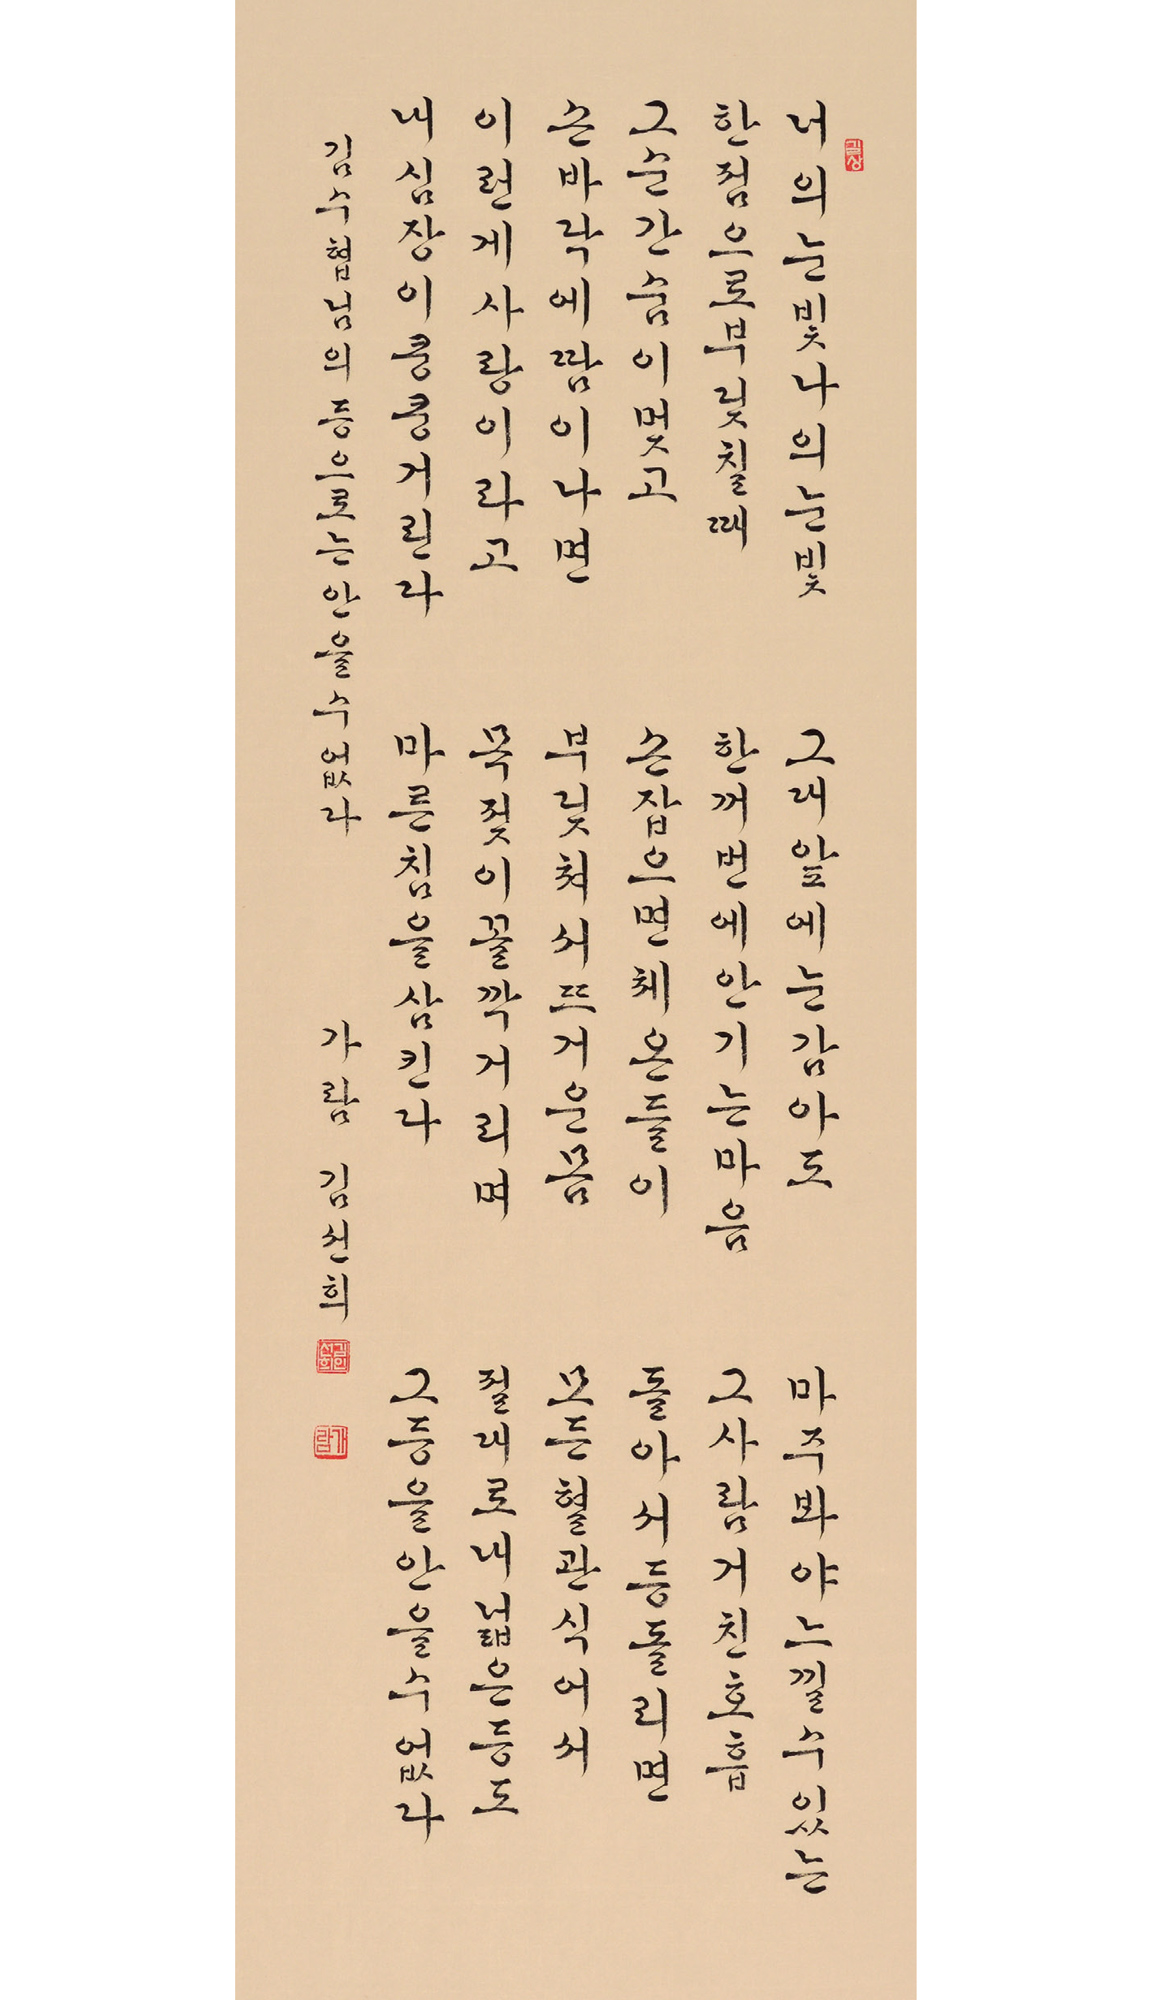 너의눈빛나의눈빛
한점으로부딪칠때
그순간숨이멎고
손바닥에땀이나면
이런게사랑이라고
내심장이쿵쿵거린다
그대앞에눈감아도
한꺼번에안기는마음
손잡으면체온들이
부딪쳐서뜨거운몸
목젖이꼴깍거리며
마른침을삼킨다
마주봐야느낄수있는
그사람거친호흡
돌아서등돌리면
모든혈관식어서
절대로내넓은등도
그등을안을수없다
김수협님의등으로는안을수없다 가람 김선희
가람